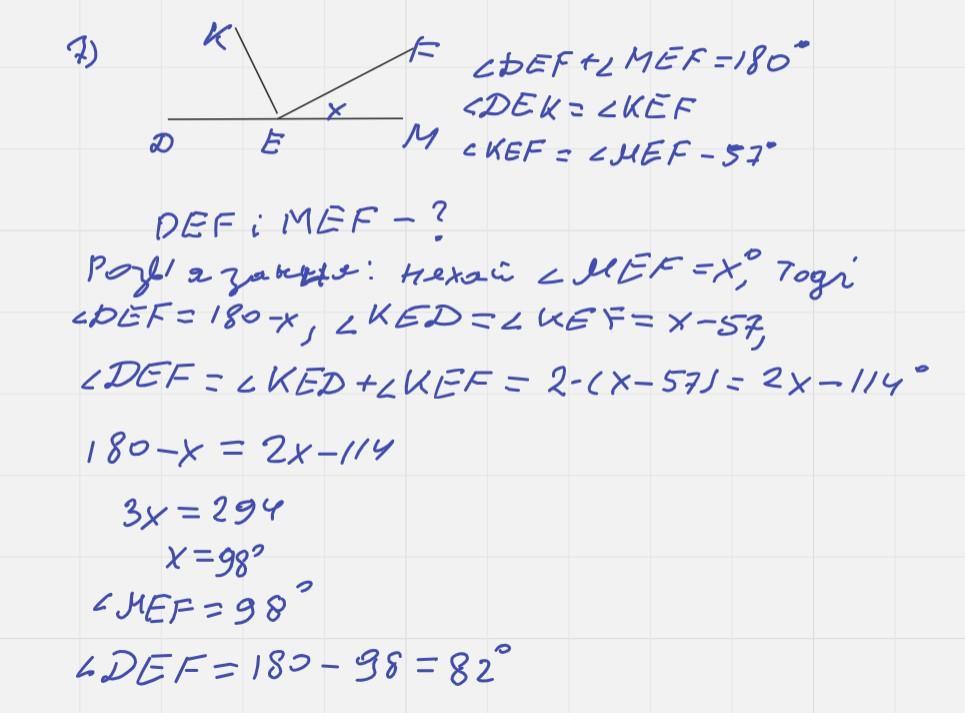 7)
K
F
x
D
E
M
∠DEF + ∠MEF = 180°
∠DEK = ∠KEF
∠KEF = ∠MEF - 57°
DEF i MEF - ?
Розв'язання: нехай ∠MEF = x°, тоді
∠DEF = 180 - x, ∠KED = ∠KEF = x - 57,
∠DEF = ∠KED + ∠KEF = 2·(x - 57) = 2x - 114°
180 - x = 2x - 114
3x = 294
x = 98°
∠MEF = 98°
∠DEF = 180 - 98 = 82°